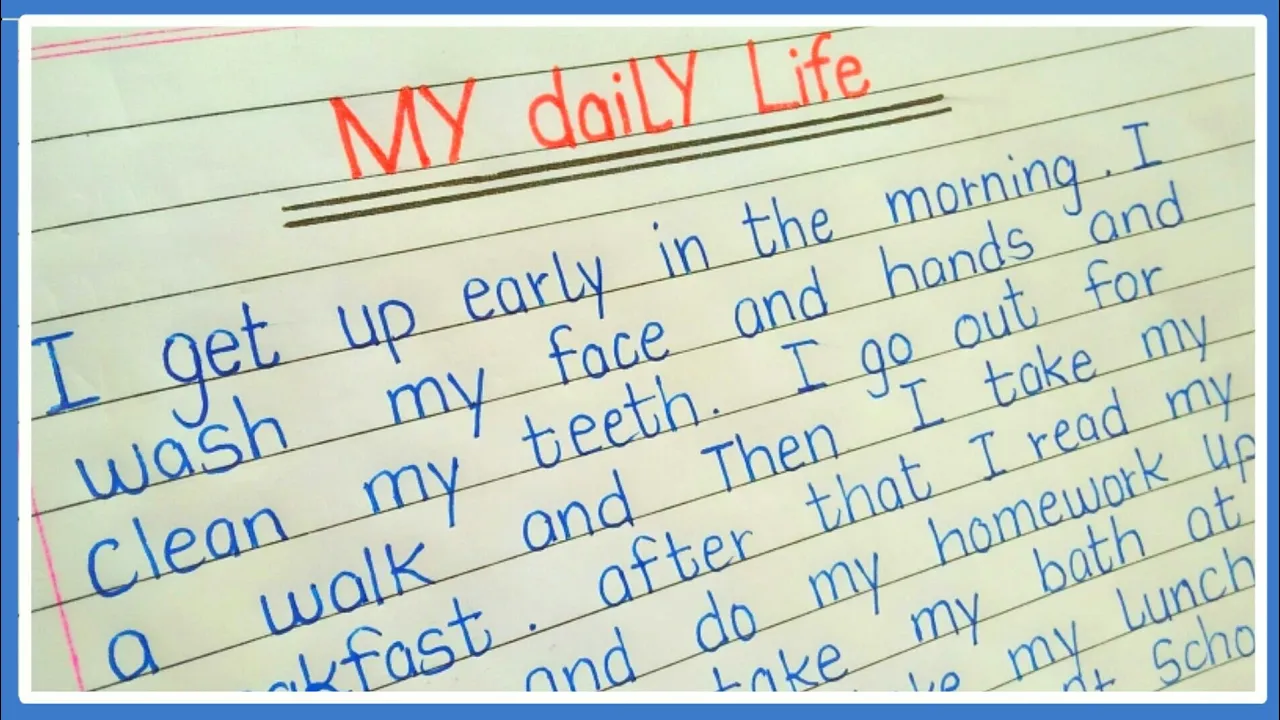 MY daiLY Life
I get up early in the morning. I
wash my face and hands and
clean my teeth. I go out for
a walk and Then I take my
akfast. after that I read my
and do my homework up
take my bath at
my Lunch
Scho